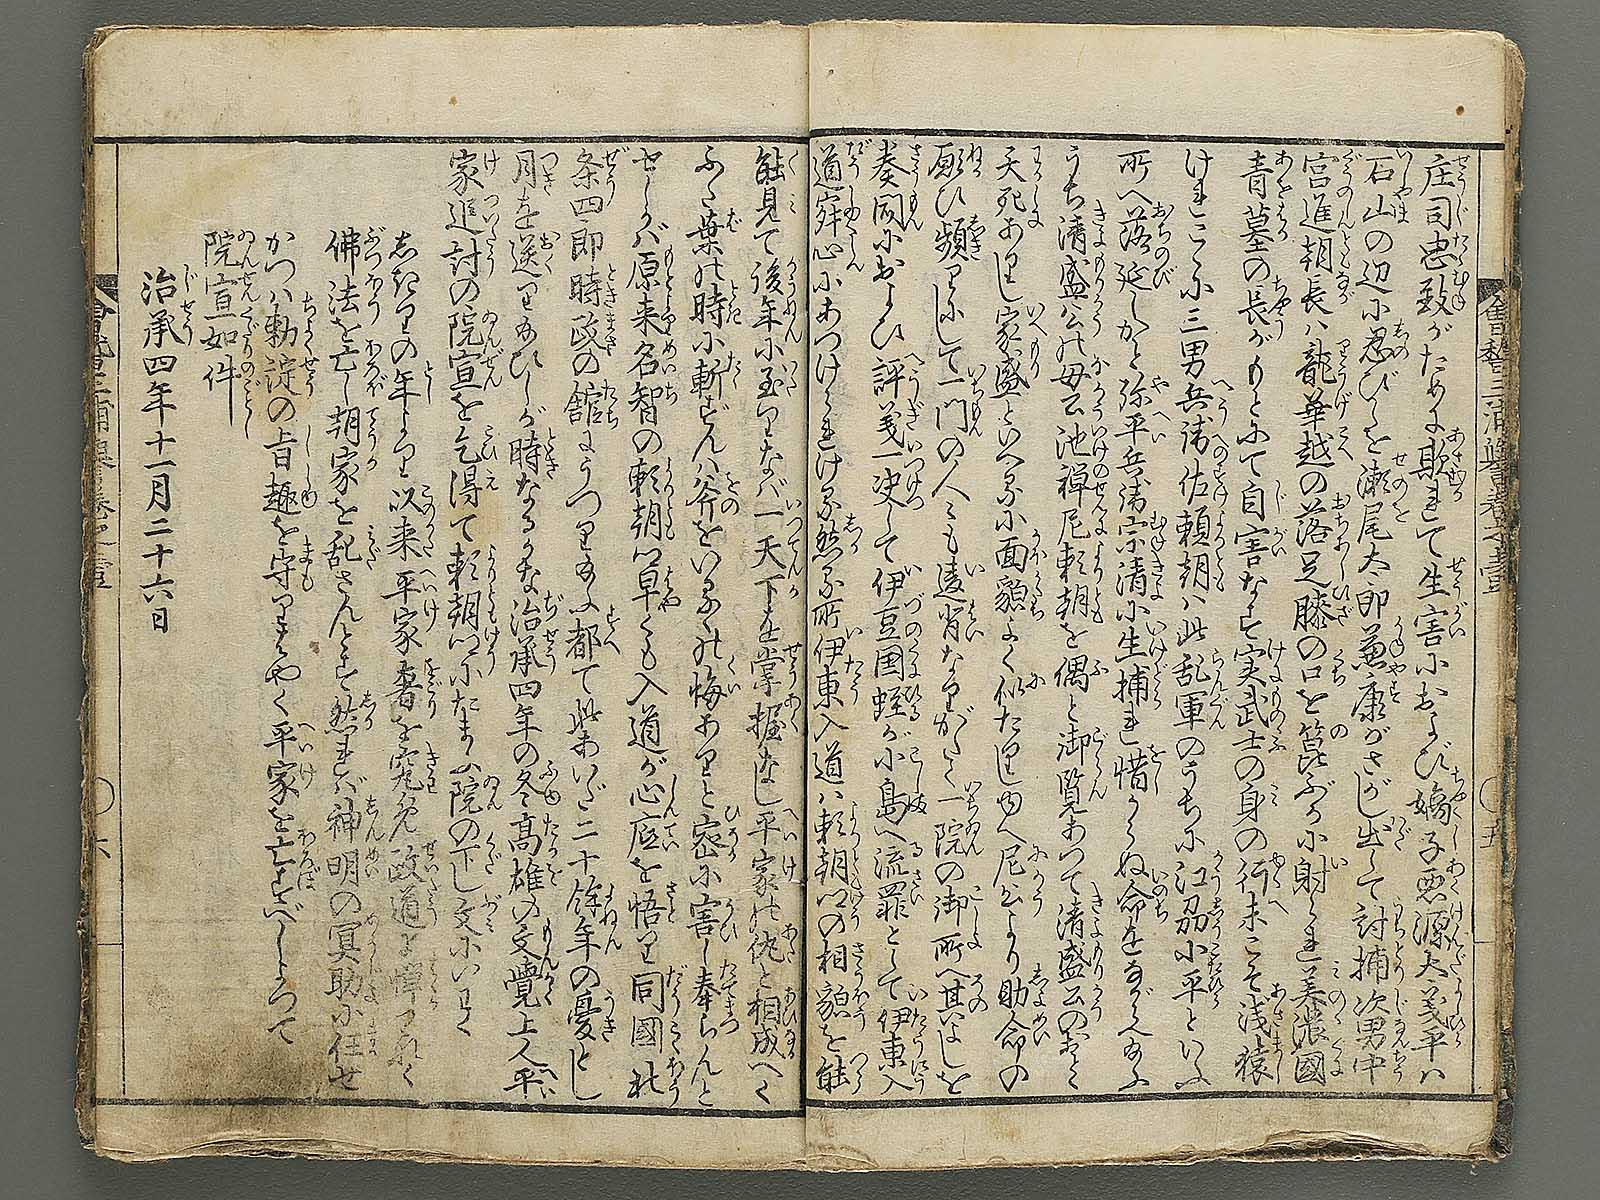 庄司忠致がために欺れて生害におよび嫡子悪源太義平ハ
石山の辺に忍びしを瀬尾太郎兼康がさがし出して討捕次男中
宮進朝長ハ龍華越の落足膝の口を箆ぶかに射られ美濃國
青墓の長がもとにて自害なす実武士の身の行末こそ浅猿
けれこゝに三男兵衛佐頼朝ハ此乱軍のうちに江州小平といふ
所へ落延しかど弥平兵衛宗清に生捕れ惜からぬ命をながらへ給ふ
うち清盛公の母公池禅尼頼朝を偶と御覧あつて清盛公のおとゝ
夭死ありし家盛といへるに面貌よく似たりしゆへ尼公より助命の
願ひ頻りにして一門の人々も違背なりがたく一院の御所へ其よしを
奏聞におよひ評義一决して伊豆国蛭が小島へ流罪として伊東入
道寂心にあつけられける然る所伊東入道ハ頼朝公の相貌を能
能見て後年に至りなバ一天下を掌握なし平家の仇と相成べく
ふた葉の時に断ずんハ斧をいるゝの悔ありと密に害し奉らんと
せしかバ原来名智の頼朝公早くも入道が心底を悟り同國北
条四郎時政の舘にうつり給ふ都て此あいだ二十餘年の憂とし
月を送り給ひしが時なるかな治承四年の冬高雄の文覺上人平
家追討の院宣を乞得て頼朝公にたまふ院の下し文にいはく
しきりの年より以来平家王
佛法を亡し朝家を乱さんとす然れバ神明の冥助に任せ
かつハ勅淀の旨趣を守りはやく平家を亡すべしよつて
院宣如件
治承四年十一月二十六日